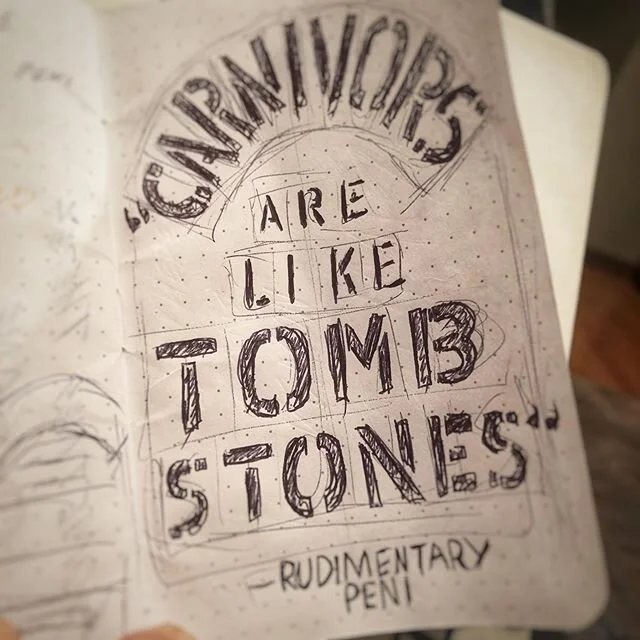 "CARNIVORS
ARE
LIKE
TOMB
STONES"
—RUDIMENTARY
PENI